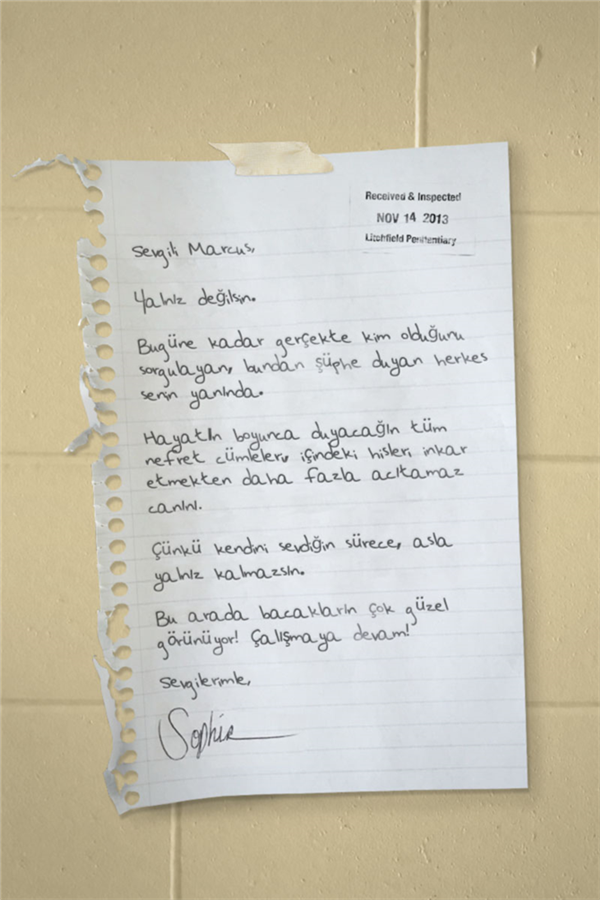 Received & Inspected
NOV 14 2013
Litchfield Penitentiary
Sevgili Marcus,
Yalnız değilsin.
Bugüne kadar gerçekte kim olduğunu
sorgulayan, bundan şüphe duyan herkes
senin yanında.
Hayatın boyunca duyacağın tüm
nefret cümleleri, içindeki hisleri inkar
etmekten daha fazla acıtamaz
canını.
Çünkü kendini sevdiğin sürece, asla
yalnız kalmazsın.
Bu arada bacakların çok güzel
görünüyor! Çalışmaya devam!
Sevgilerimle,
Sophia